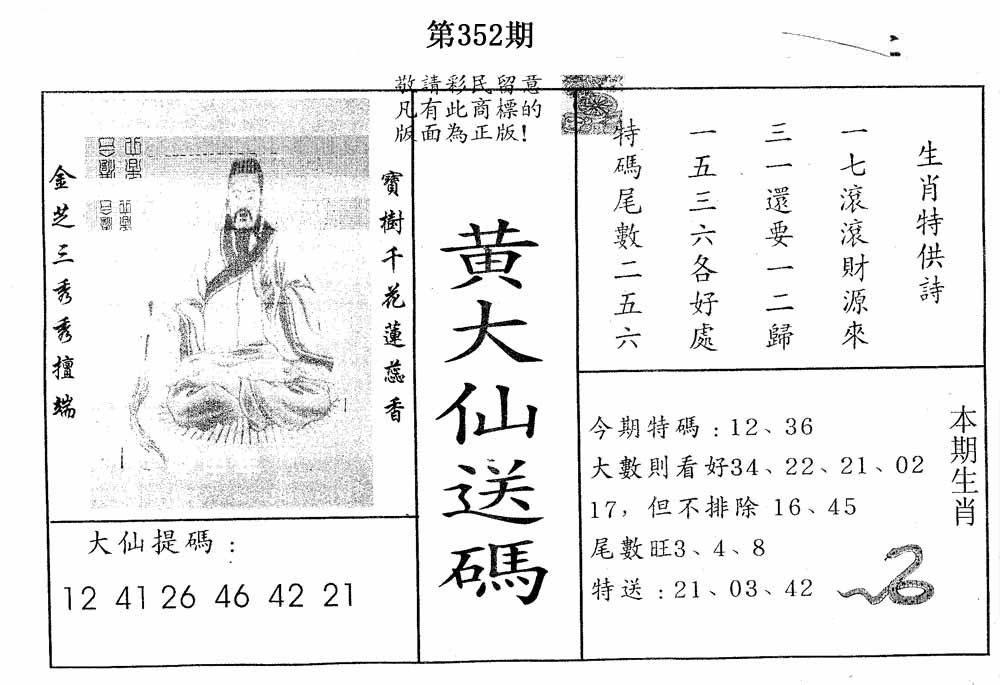 第352期
敬請彩民留意
凡有此商標的
版面為正版!
寶樹千花蓮蕊香
金芝三秀秀擅端
大仙提碼:
12 41 26 46 42 21
黃大仙送碼
生肖特供詩
一七滾滾財源來
三一還要一二歸
一五三六各好處
特碼尾數二五六
本期生肖
今期特碼:12、36
大數則看好34、22、21、02
17，但不排除 16、45
尾數旺3、4、8
特送:21、03、42